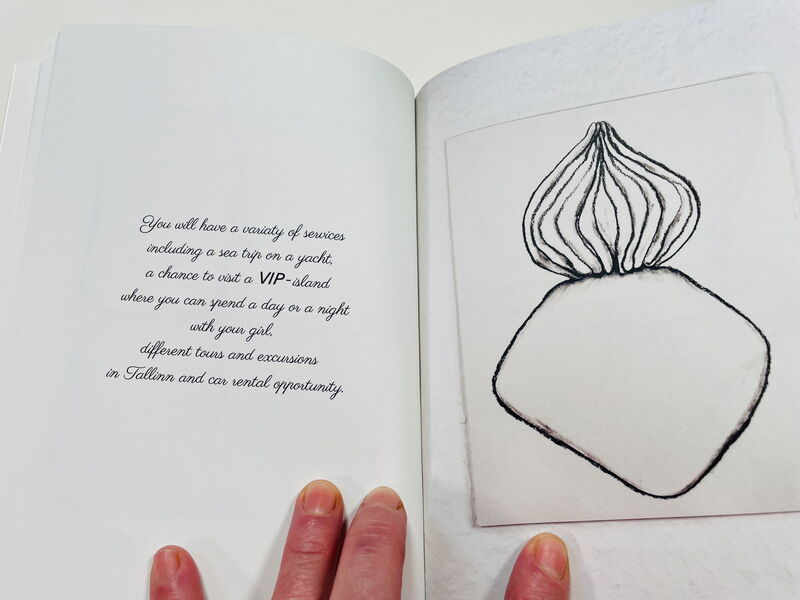 You will have a variaty of services
including a sea trip on a yacht,
a chance to visit a VIP-island
where you can spend a day or a night
with your girl,
different tours and excursions
in Tallinn and car rental opportunity.